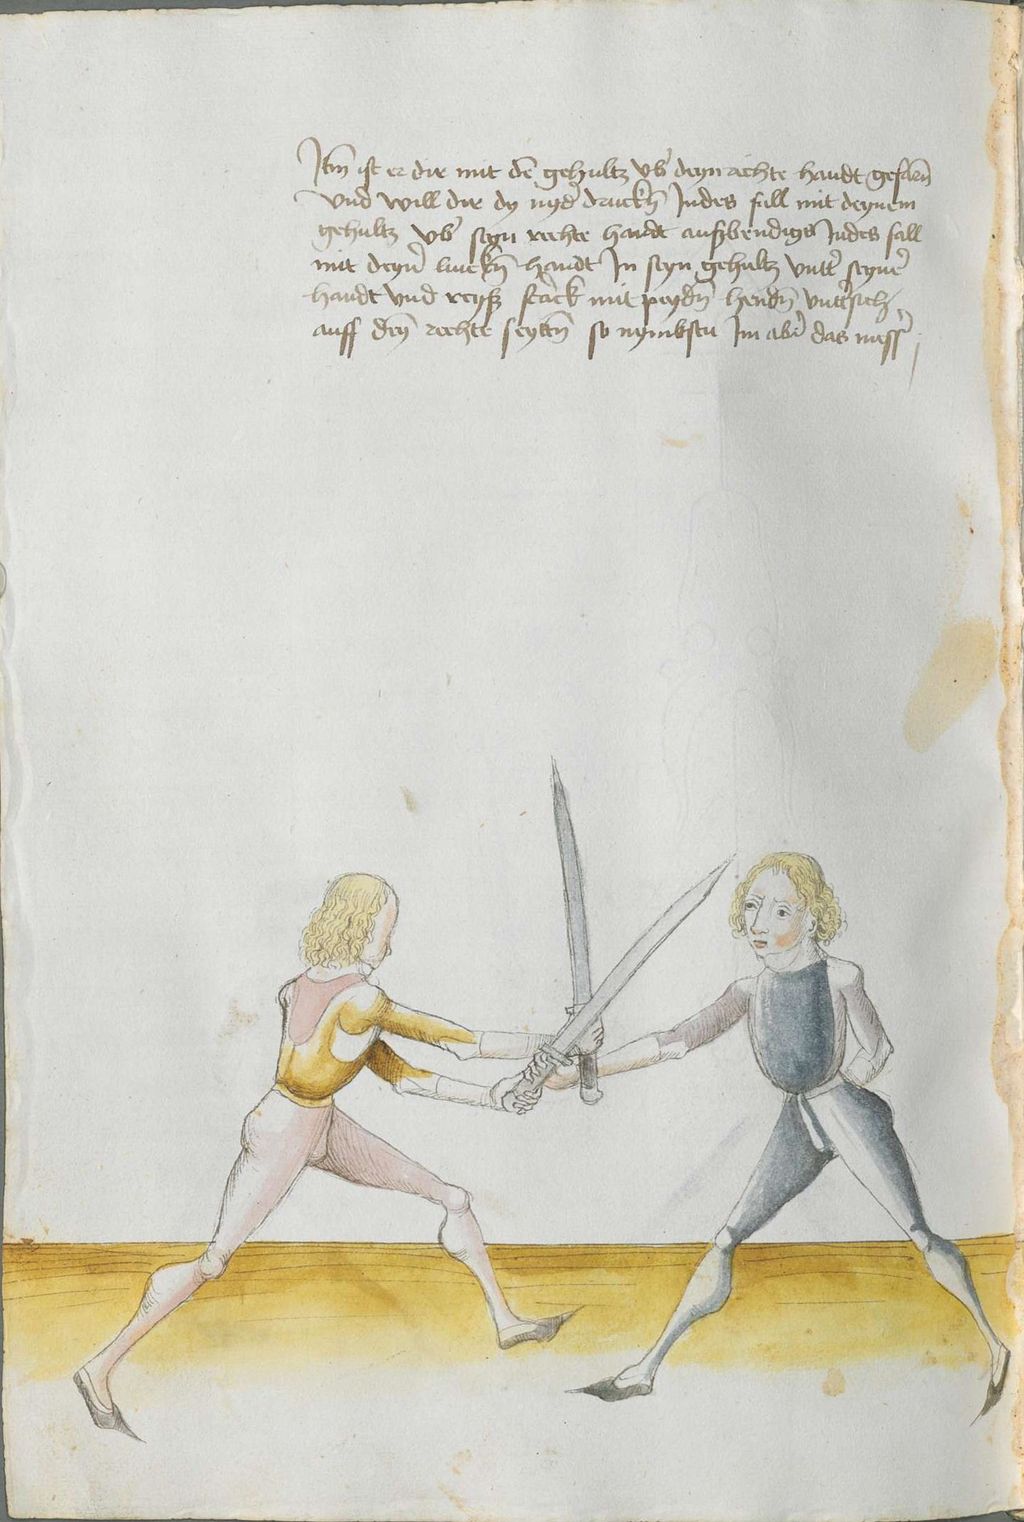 Itm̄ ist er dir mit dē gehultz vb̾ deyn rechte handt gefarn̄
vnd will dir dy nyd̾ druckn̄ Indes fall mit deynem
gehultz vb̾ seyn rechte handt auszbendigs Indes fall
mit deyn̾ linckn̄ handt In seyn gehultz vntt̾ seyne̾
handt vnd reysz starck mit peydn̄ hendn̄ vntt̾sich
auff deÿ rechte seyttn̄ so nymbstu Im ab̾ das mess̾